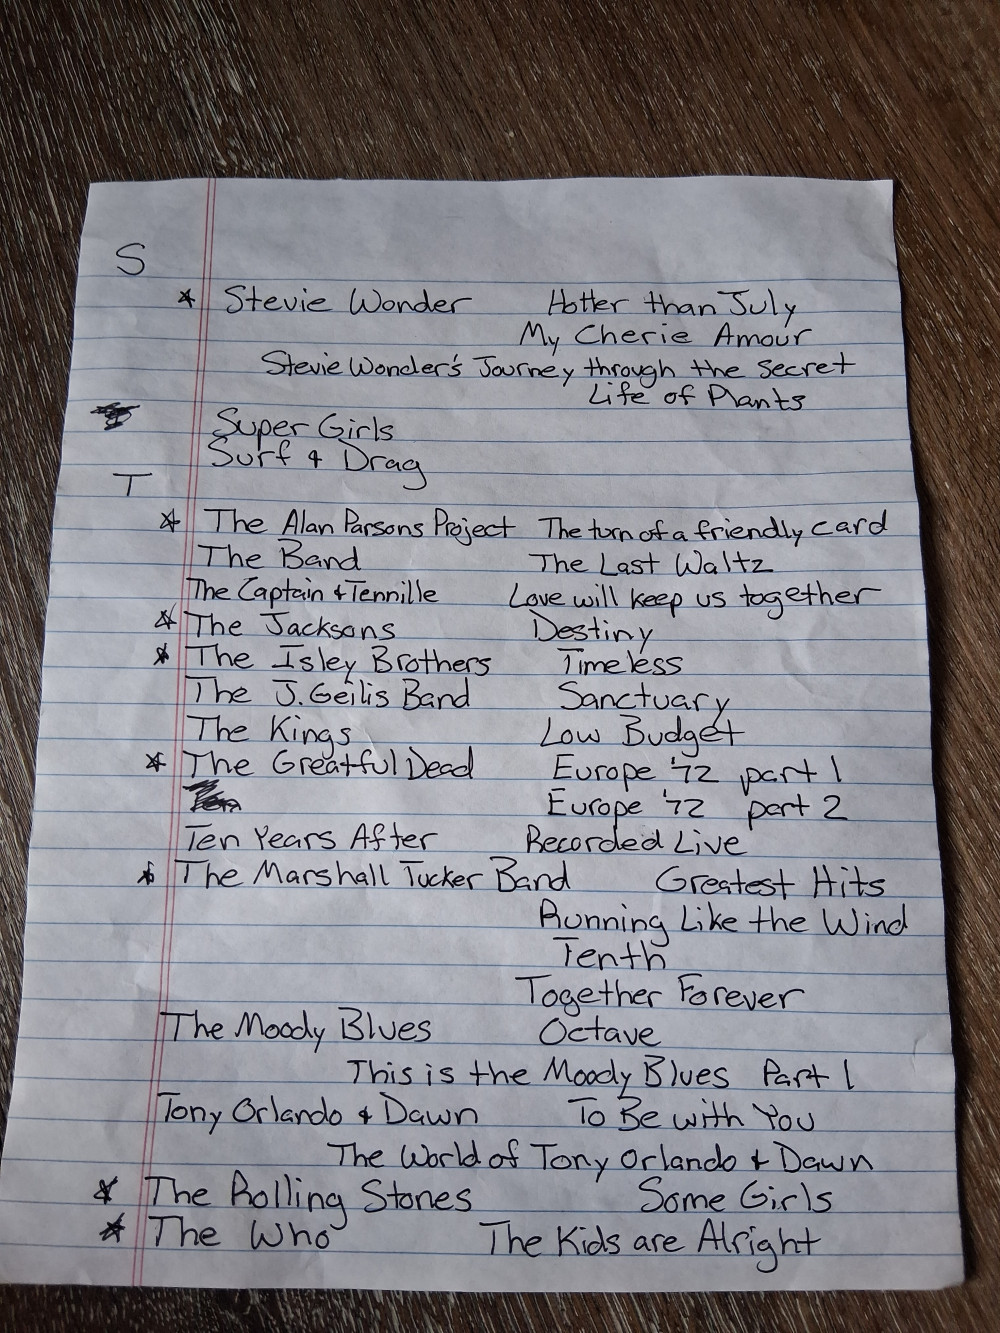 S
* Stevie Wonder Hotter than July
My Cherie Amour
Stevie Wonder's Journey through the Secret
Life of Plants
Super Girls
Surf & Drag
T
* The Alan Parsons Project The turn of a friendly card
The Band The Last Waltz
The Captain & Tennille Love will keep us together
* The Jacksons Destiny
* The Isley Brothers Timeless
The J. Geilis Band Sanctuary
The Kings Low Budget
* The Greatful Dead Europe '72 part 1
Europe '72 part 2
Ten Years After Recorded Live
* The Marshall Tucker Band Greatest Hits
Running Like the Wind
Tenth
Together Forever
The Moody Blues Octave
This is the Moody Blues Part 1
Tony Orlando & Dawn To Be with You
The World of Tony Orlando & Dawn
* The Rolling Stones Some Girls
* The Who The Kids are Alright